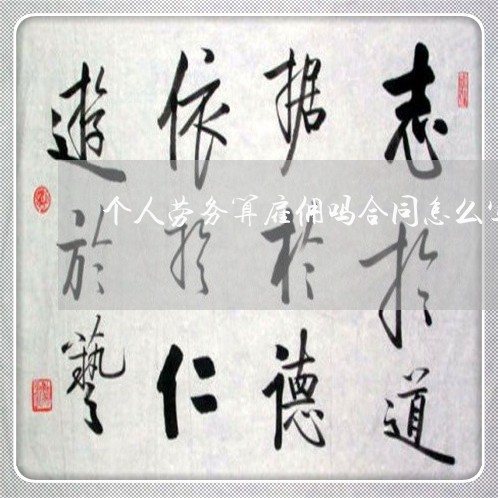 志於道
据於德
依於仁
遊於藝
个人劳务算雇佣吗合同怎么